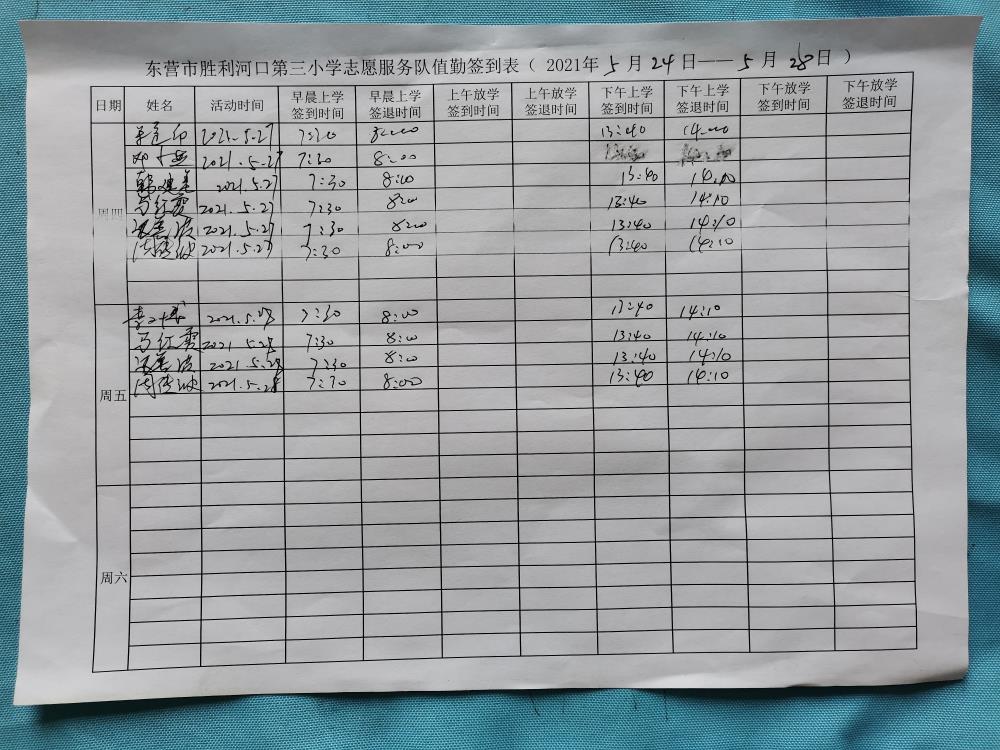 东营市胜利河口第三小学志愿服务队值勤签到表（ 2021年 5 月 24 日—— 5 月 28 日 ）
日期 姓名 活动时间 早晨上学签到时间 早晨上学签退时间 上午放学签到时间 上午放学签退时间 下午上学签到时间 下午上学签退时间 下午放学签到时间 下午放学签退时间
周四
2021.5.27 7:30 8:00 13:40
2021.5.27 7:30 8:00
2021.5.27 7:30 8:00 13:40 14:10
马红霞 2021.5.27 7:30 8:00 13:40 14:10
2021.5.27 7:30 8:00 13:40 14:10
2021.5.27 7:30 8:00 13:40 14:10
周五
2021.5.28 7:30 8:00 13:40 14:10
马红霞 2021.5.28 7:30 8:00 13:40 14:10
2021.5.28 7:30 8:00 13:40 14:10
2021.5.28 7:30 8:00 13:40 14:10
周六